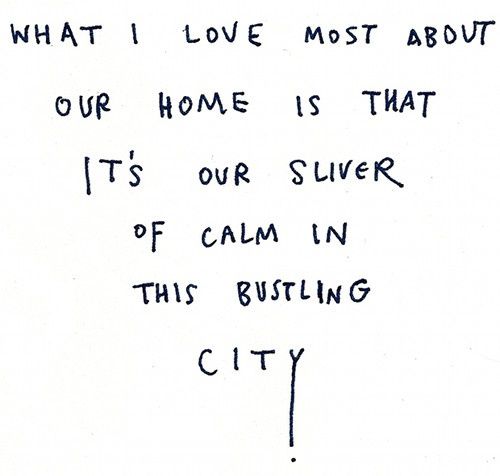 WHAT I LOVE MOST ABOUT
OUR HOME IS THAT
IT'S OUR SLIVER
OF CALM IN
THIS BUSTLING
CITY.